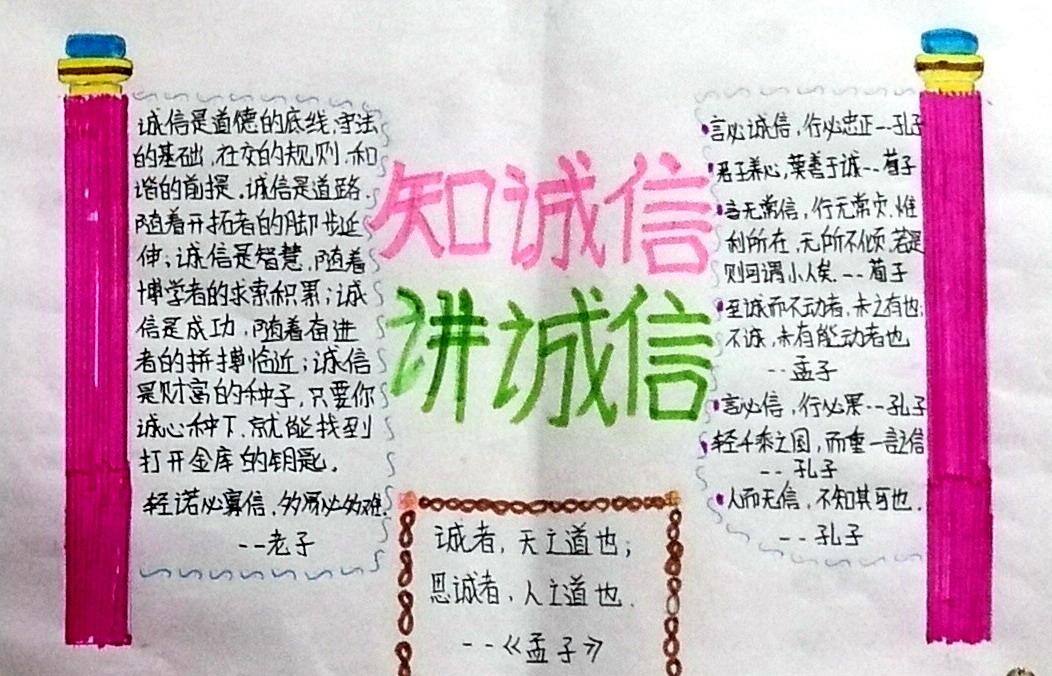 诚信是道德的底线,守法
的基础,社交的规则,和
谐的前提。诚信是道路,
随着开拓者的脚步延
伸;诚信是智慧,随着
博学者的求索积累;诚
信是成功,随着奋进
者的拼搏临近;诚信
是财富的种子,只要你
诚心种下,就能找到
打开金库的钥匙。
轻诺必寡信,多易必多难。
--老子
知诚信
讲诚信
诚者,天之道也;
思诚者,人之道也.
--《孟子》
言必诚信,行必忠正--孔子
君子养心,莫善于诚--荀子
言无常信,行无常贞,惟
利所在,无所不倾,若是
则可谓小人矣.--荀子
至诚而不动者,未之有也;
不诚,未有能动者也
--孟子
言必信,行必果--孔子
轻千乘之国,而重一言之信
--孔子
人而无信,不知其可也.
--孔子